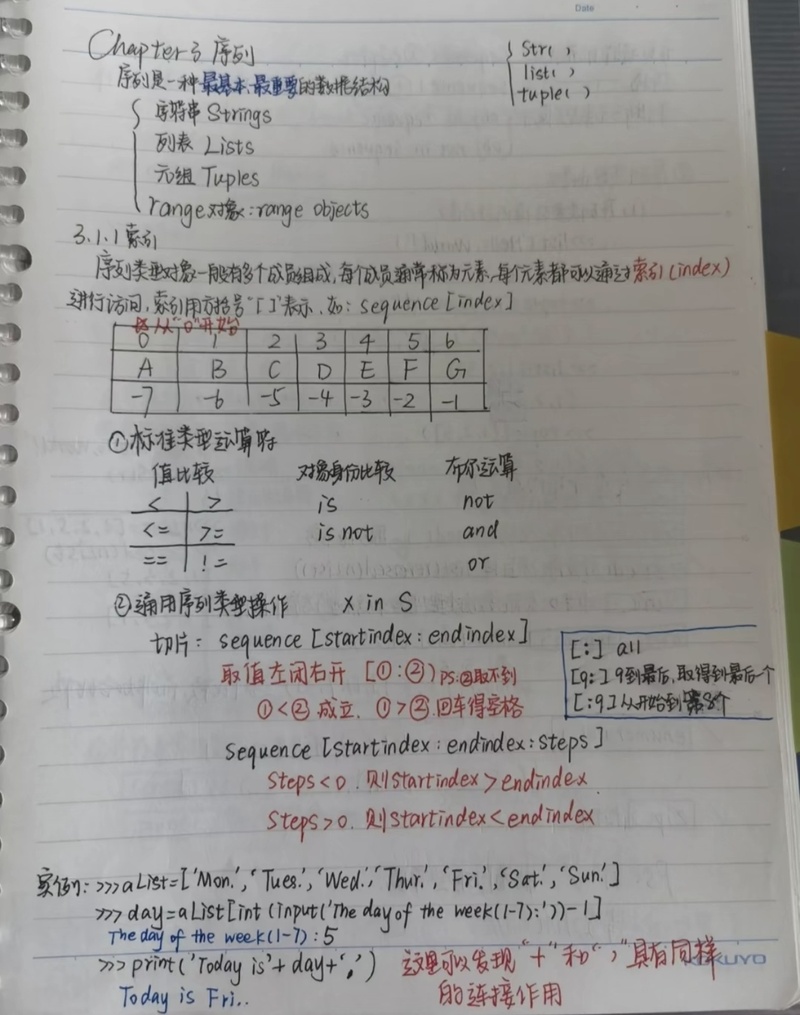 Date
Chapter 3 序列
str( )
list( )
tuple( )
序列是一种最基本、最重要的数据结构
字符串 Strings
列表 Lists
元组 Tuples
range对象:range objects
3.1.1 索引
序列类型对象一般有多个成员组成,每个成员通常称为元素,每个元素都可以通过索引(index)
进行访问,索引用方括号"[ ]"表示.如: sequence[index]
从"0"开始
0 1 2 3 4 5 6
A B C D E F G
-7 -6 -5 -4 -3 -2 -1
①标准类型运算符
值比较 对象身份比较 布尔运算
< > is not
<= >= is not and
== != or
②通用序列类型操作 x in S
切片: sequence [startindex: endindex]
取值左闭右开 [①:②) PS:②取不到
①<②成立, ①>②.回车得空格
[:] all
[9:]9到最后,取得到最后一个
[:9]从开始到第8个
sequence [startindex: endindex:steps]
Steps<0.则startindex>endindex
Steps>0.则startindex<endindex
实例: >>>aList=['Mon.','Tues.','Wed.','Thur.','Fri.','Sat.','Sun.']
>>>day=aList[int(input('The day of the week(1-7):'))-1]
The day of the week(1-7):5
>>>print('Today is'+day+'.')
这里可以发现"+"和","具有同样
的连接作用
Today is Fri..
KOKUYO